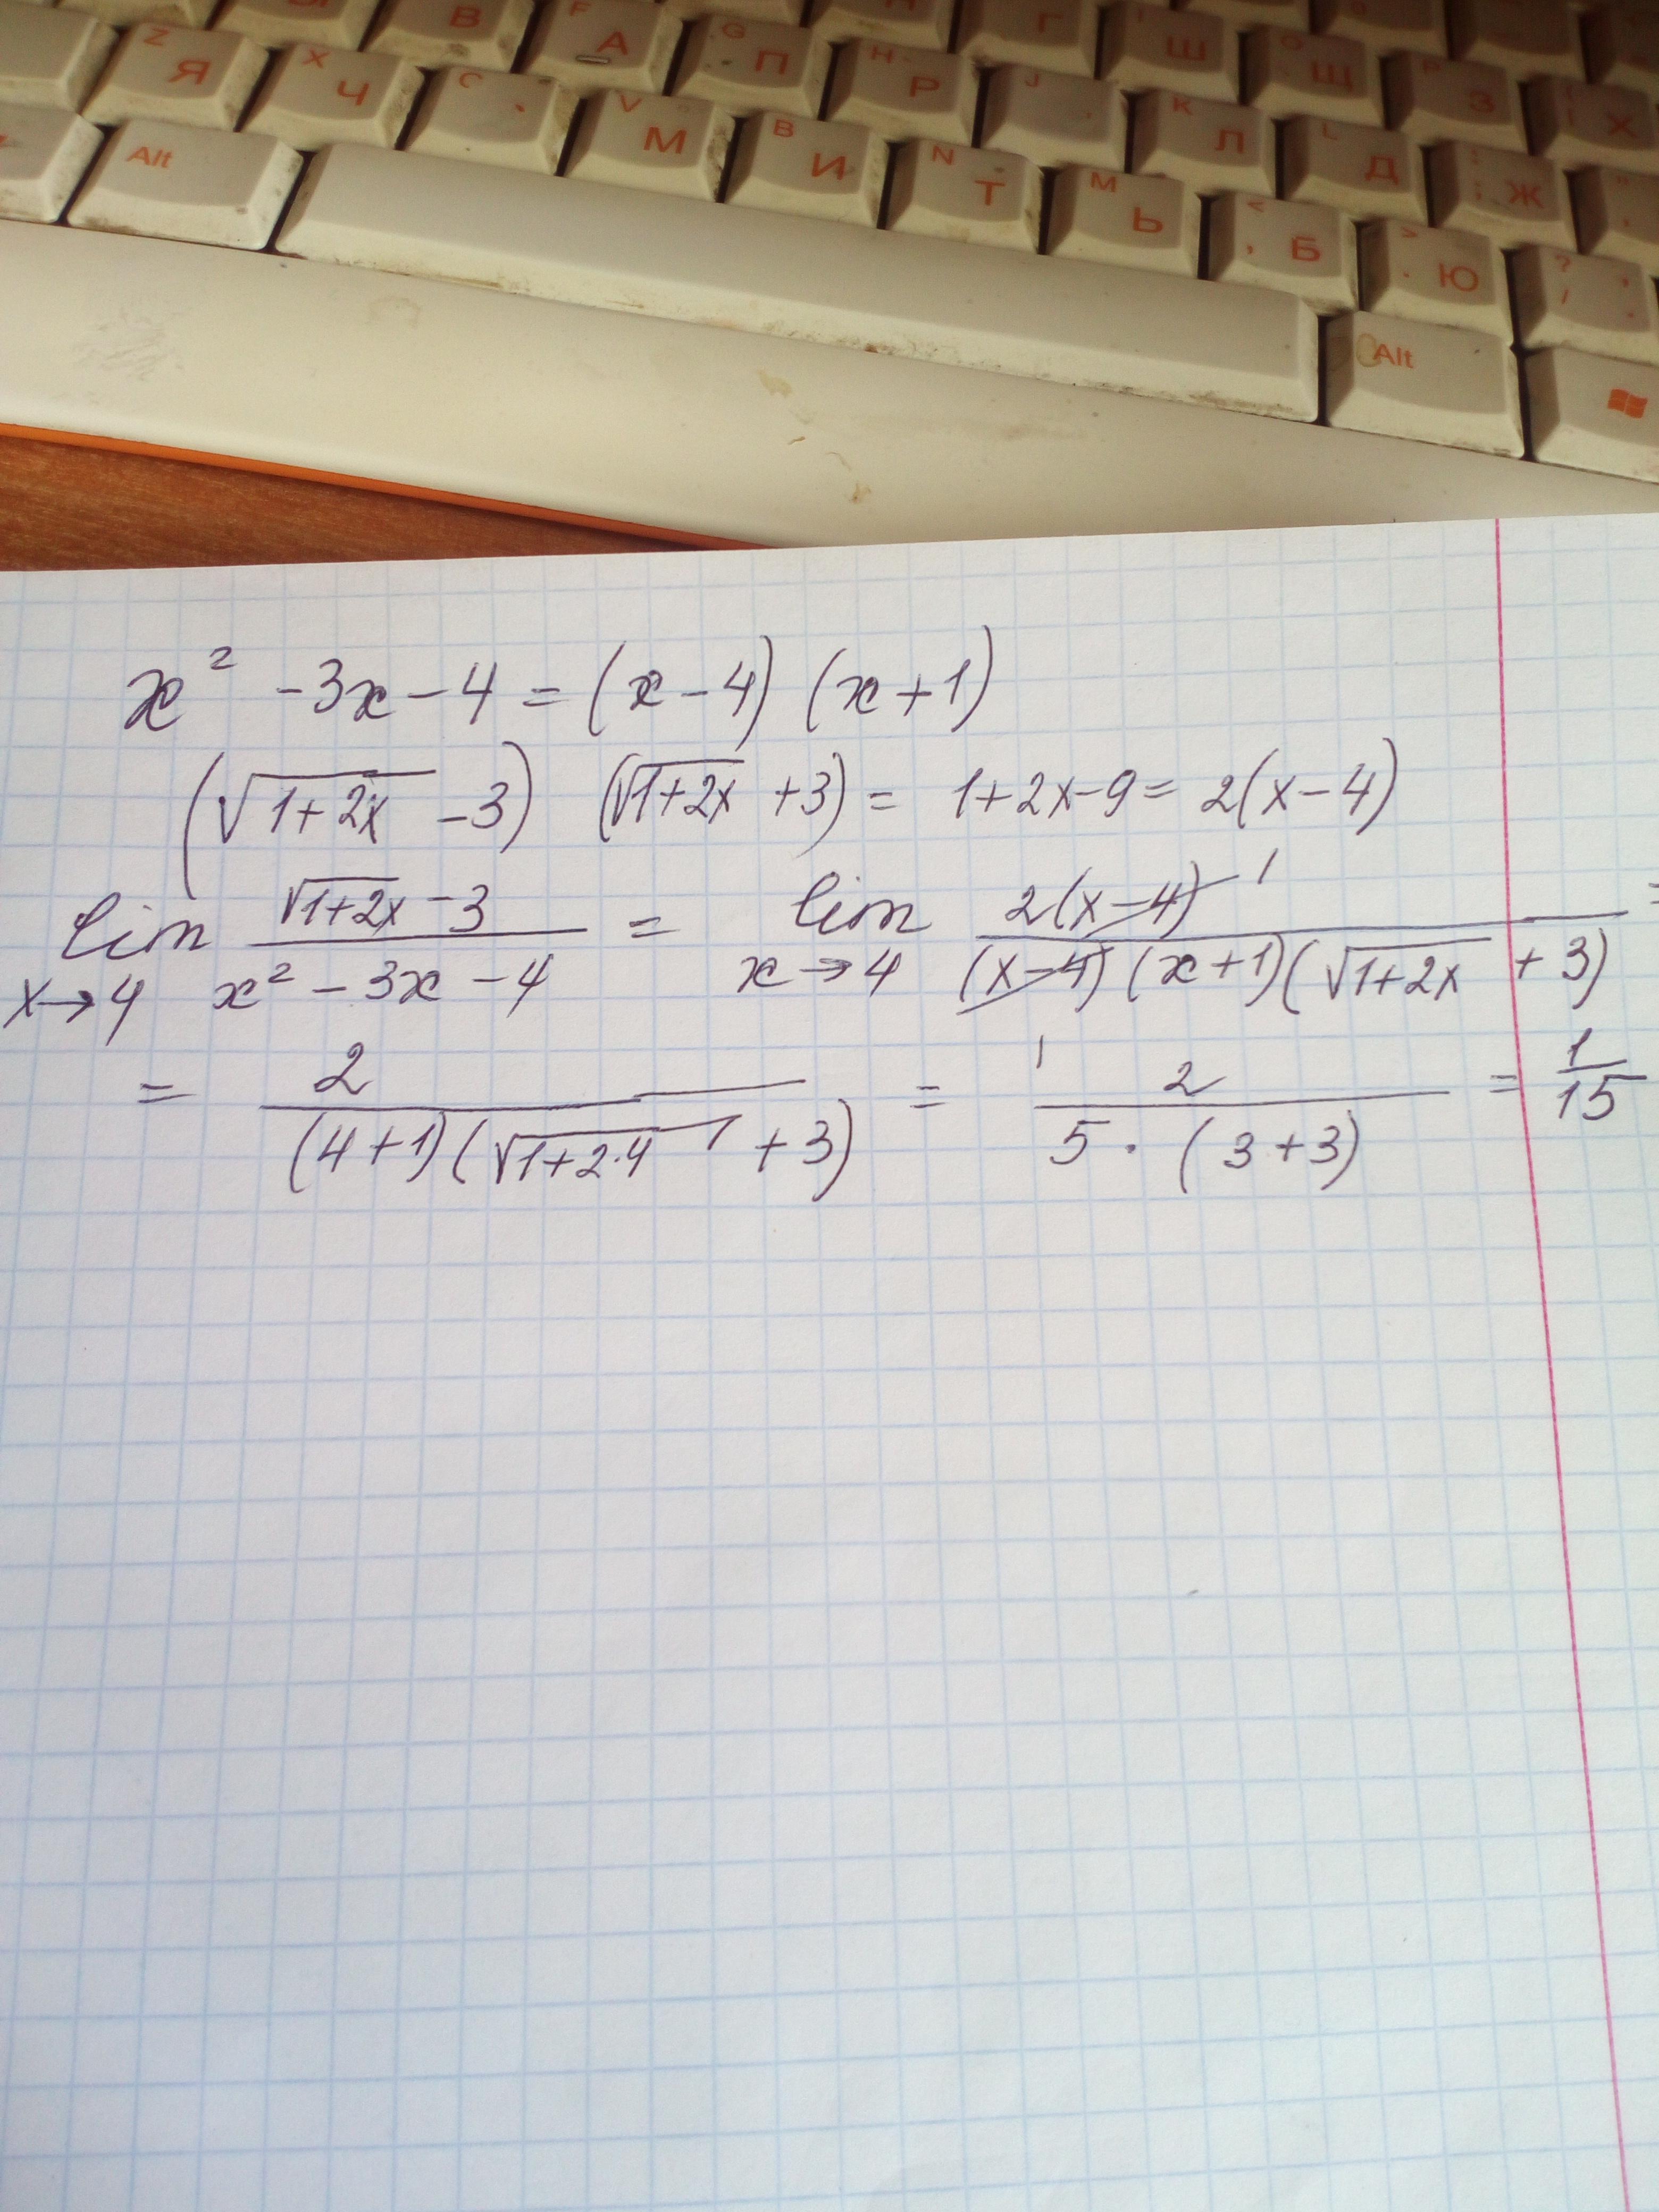 А
Z Я X Ч C V М B И N Т M Ь < , Б > . Ю ? /
G П H Р J K Л L Д ; Ж
Ш Щ З Х
Alt Alt
x² - 3x - 4 = (x - 4) (x + 1)
(√1+2x - 3) (√1+2x + 3) = 1+2x-9 = 2(x-4)
lim x→4 √1+2x - 3 / x² - 3x - 4 = lim x→4 2(x-4) 1 / (x-4) (x+1)(√1+2x + 3) =
= 2 / (4+1)(√1+2·4 + 3) = 1 2 / 5 · (3+3) = 1/15